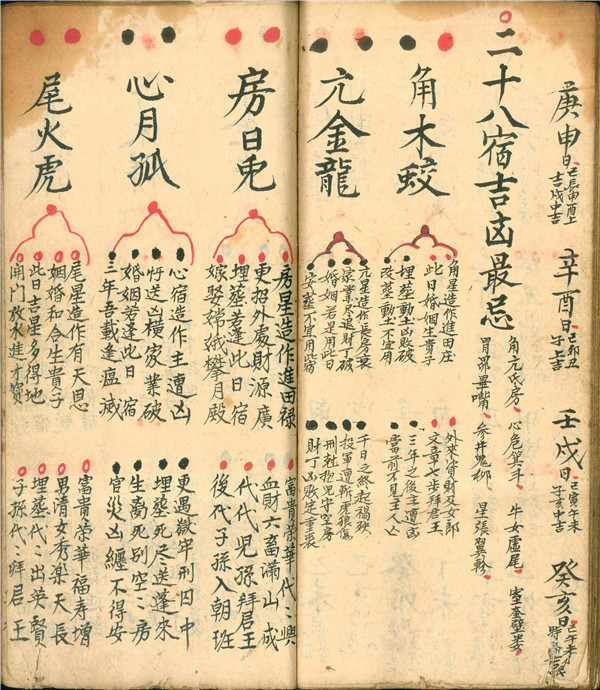 庚申日 己辰申酉上吉戌中吉
辛酉日 己卯丑子上吉
壬戌日 己寅午未子亥中吉
癸亥日 己午未
二十八宿吉凶最忌
角亢氐房、心危箕斗、牛女虛尾、室奎壁婁、
胃昴畢嘴、參井鬼柳、星張翼軫、
角木蛟
角星造作進田庄 外來資財及女郎
此日婚姻生貴子 文章七步拜君王
埋塟動土凶敗破 三年之後主遭凶
改塟動土不宜用 當前不見主人亡
亢金龍
亢星造作長房衰 千日之終起禍殃
家業尽退財丁破 投軍遭斬虎狼傷
婚姻若是用此日 刑尅抱児守空房
安塟不宜用此宿 財丁凶敗定重喪
房日兎
房星造作進田禄 富貴荣華代〻興
更招外處財源廣 血財六畜滿山成
埋塟若逢此日宿 代代児孫拜君王
嫁娶嫦娥攀月殿 後代子孫入朝班
心月狐
心宿造作主遭凶 更遇嶽牢刑囚中
忤送凶横家業破 埋塟死尽送蓬來
婚姻若逢此日宿 生离死别空〻房
三年吾載逢瘟滅 官災凶纏不得安
尾火虎
尾星造作有天恩 富貴荣華福寿增
姻婚和合生貴子 男清女秀楽天長
此日吉星多得地 埋塟代〻出英賢
開門放水進才寳 子孫代〻拜君王